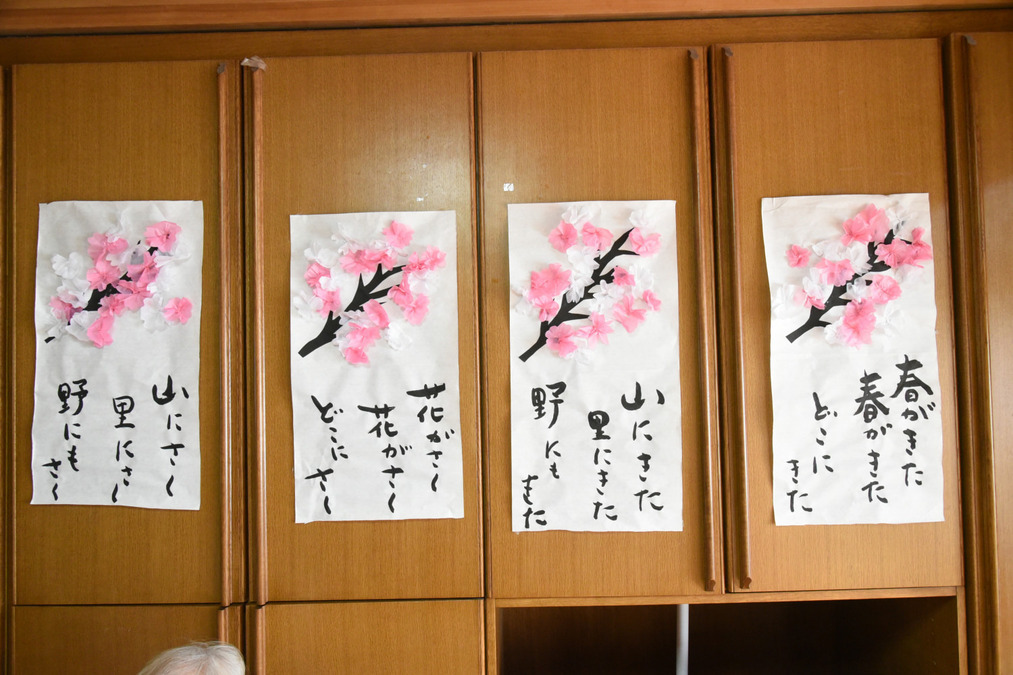 春がきた
春がきた
どこに
きた
山にきた
里にきた
野にも
きた
花がさく
花がさく
どこに
さく
山にさく
里にさく
野にも
さく